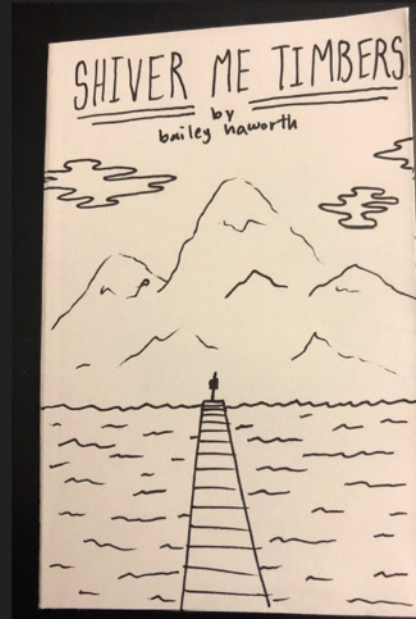 SHIVER ME TIMBERS
by
bailey haworth